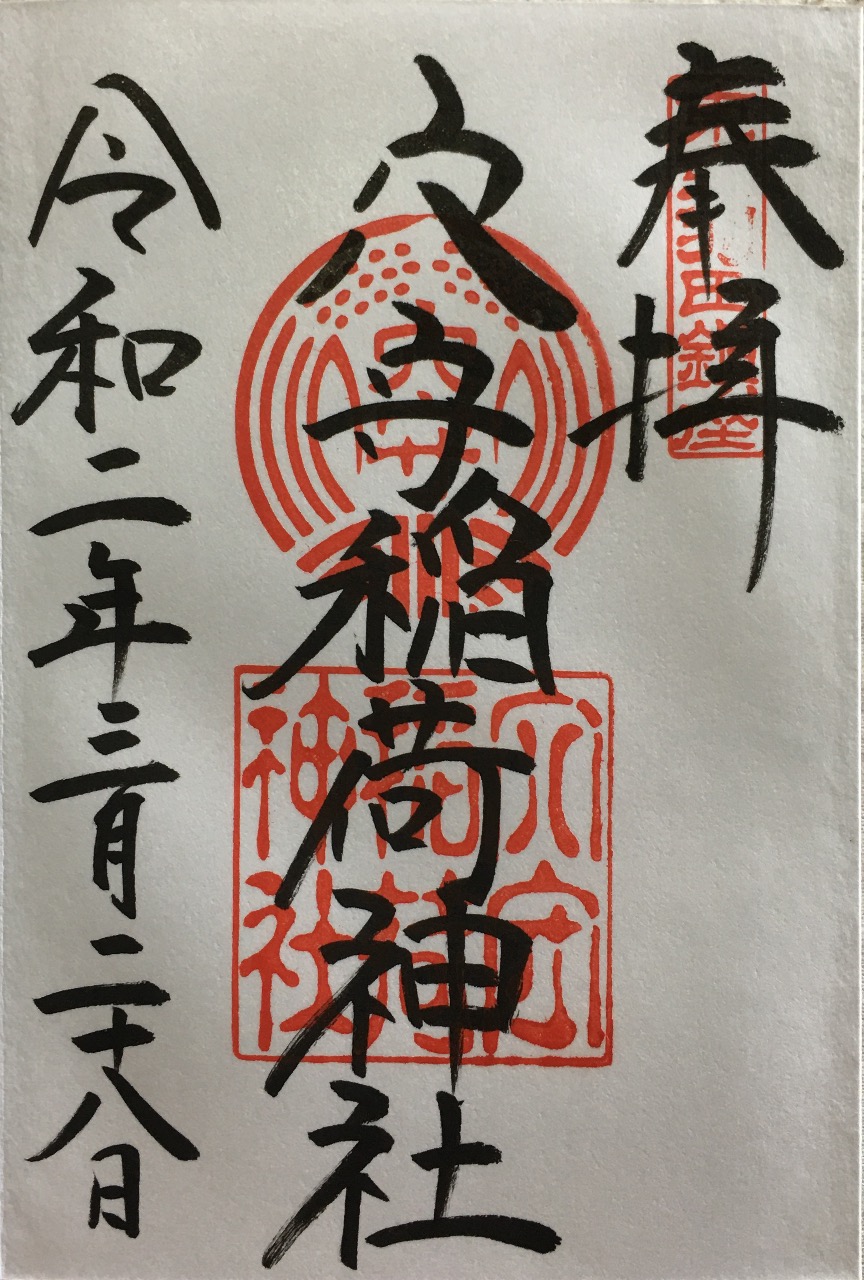 奉拝
穴守稲荷神社
令和二年三月二十八日
穴守
穴守稲荷神社